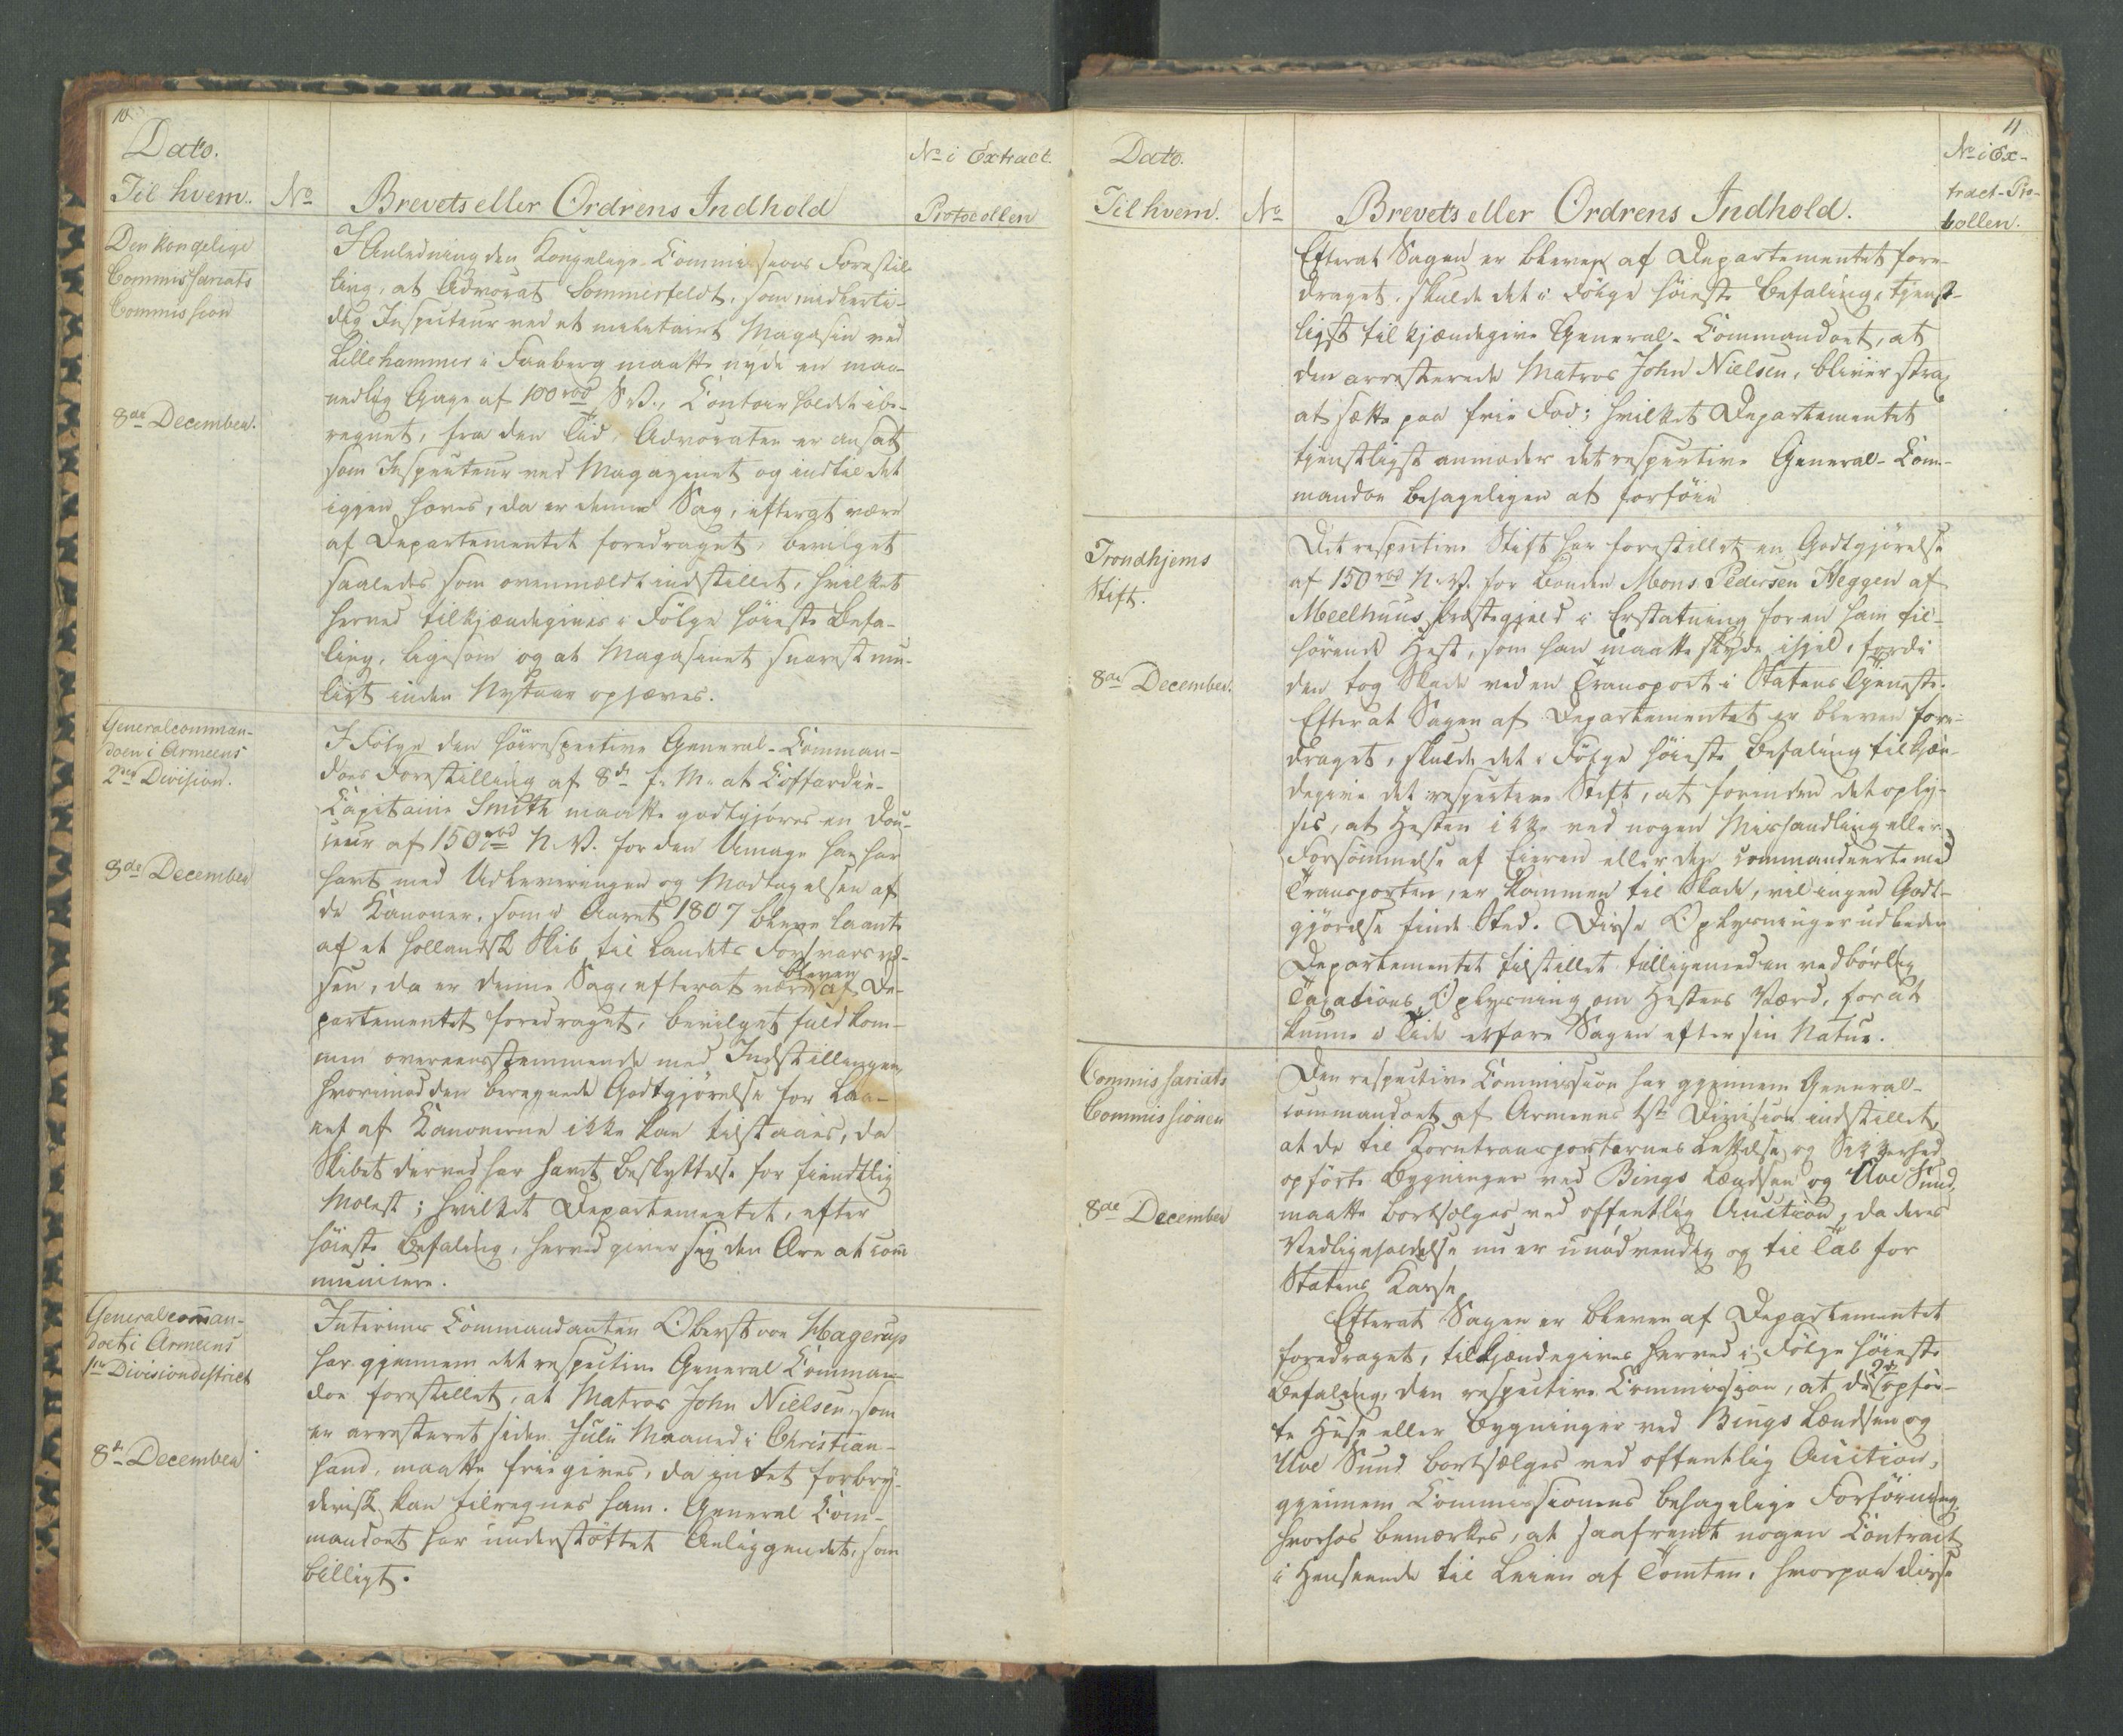 10.
Dato.
Til hvem.
No
Brevets eller Ordrens Indhold
No i Extract
Protocollen
Den kongelige
Commissariats
Commission
8de December.
I Anledning den Kongelige Commissions Forestil-
ling, at Advocat Sommerfeldt, som midlerti-
dig Inspecteur ved et militairt Magasin ved
Lillehammer i Faaberg maatte nyde en maa-
nedlig Gage af 100 rbd S.V., Contoirholdt ibe-
regnet, fra den Tid, Advocaten er ansat
som Inspecteur ved Magazinet og indtil det
iggjen hæves, da er denne Sag, efterat være
af Departementet foredraget, bevilget
saaledes som ovenmældt indstillet, hvilket
herved tilkjændegives i Følge høieste Befa-
ling, ligesom og at Magasinet snarest mu-
ligt inden Nytaar ophæves.
Generalcomman-
doen i Armeens
2den Division.
8de December
I Følge den høirespective General-Comman-
does Forestilling af 8de f. M. at Coffardie-
Capitaine Smith maatte godtgjøres en Dou-
ceur af 150 rbd N.V. for den Umage han har
havt med Udleveringen og Modtagelsen af
de Kanoner, som i Aaret 1807 bleve laante
af et hollandsk Skib til Landets Forsvarsvæ-
sen, da er denne Sag, efterat være bleven af De-
partementet foredraget, bevilget fuldkom-
men overeensstemmende med Indstillingen,
hvorimod den beregnede Godtgjørelse for Laa-
net af Kanonerne ikke kan tilstaaes, da
Skibet derved har havt Beskyttelse for fiendtlig
Molest; hvilket Departementet, efter
høieste Befaling, herved giver sig den Ære at com-
municere.
Generalcomman-
doet i Armeens
1ste Divisiondistrict
8de December
Interims Commandanten Oberst von Hagerup
har gjennem det respective General Comman-
doe forestillet, at Matros John Nielsen, som
er arresteret siden Julii Maaned i Christian-
sand, maatte friegives, da intet forbry-
derisk kan tilregnes ham. General Com-
mandoet har understøttet Anliggendet, som
billigt.
11
Dato.
Til hvem.
No
Brevets eller Ordrens Indhold.
No i Ex-
tract-Pro-
tocollen.
Efterat Sagen er bleven af Departementet fore-
draget, skulde det i Følge høieste Befaling, tjenst-
ligst tilkjændegive General-Commandoet, at
den arresterede Matros John Nielsen, bliver strax
at sætte paa frie Fod; hvilket Departementet
tjenstligst anmoder det respective General-Com-
mandoe behageligen at forføie
Trondhjems
Stift.
8de December.
Det respective Stift har forestillet en Godtgjørelse
af 150 rbd N.V. for Bonden Mons Pedersen Heggen af
Meelhuus Præstegjeld i Erstatning for en ham til-
hørende Hest, som han maatte skyde ihjel, fordi
den tog Skade ved en Transport i Statens Tjeneste.
Efterat Sagen af Departementet er bleven fore-
draget, skulde det i Følge høieste Befaling tilkjæn-
degive det respective Stift, at forinden det oply-
ses, at Hesten ikke ved nogen Mishandling eller
Forsømmelse af Eieren eller den commandeerte med
Transporten, er kommen til Skade, vil ingen Godt-
gjørelse finde Sted. Disse Oplysninger udbeder
Departementet tilstillet tilligemed en vedbørlig
Taxations Oplysning om Hestens Værd, for at
kunne i Tide erfare Sagen efter sin Natur.
Commissariats
Commissionen
8de December
Den respective Commission har gjennem General-
commandoet af Armeens 1ste Division indstillet,
at de til Korntransporternes Lettelse og Sikkerhed
opførte Bygninger ved Bings Lændsen og Uve Sund,
maatte bortsælges ved offentlig Auction, da deres
Vedligeholdelse nu er unødvendig og til Tab for
Statens Kasse
Efterat Sagen er bleven af Departementet
foredraget, tilkjændegives herved i Følge høieste
Befaling, den respective Commission, at de 2de opfør-
te Huse eller Bygninger ved Bings Lændsen og
Uve Sund bortsælges ved offentlig Auction,
gjennem Commissionens behagelige Forføining,
hvorhos bemærkes, at saafremt nogen Contract
i Henseende til Leien af Tomten, hvorpaa disse